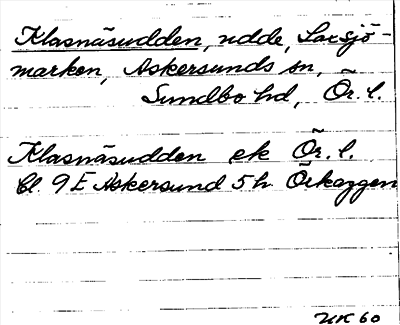 Klasnäsudden, udde, Laxsjö-
marken, Askersunds sn,
Sundbo hd, Ör. l.
Klasnäsudden ek Ör. l.
Bl. 9E Askersund 5h Örkaggen
HK 60